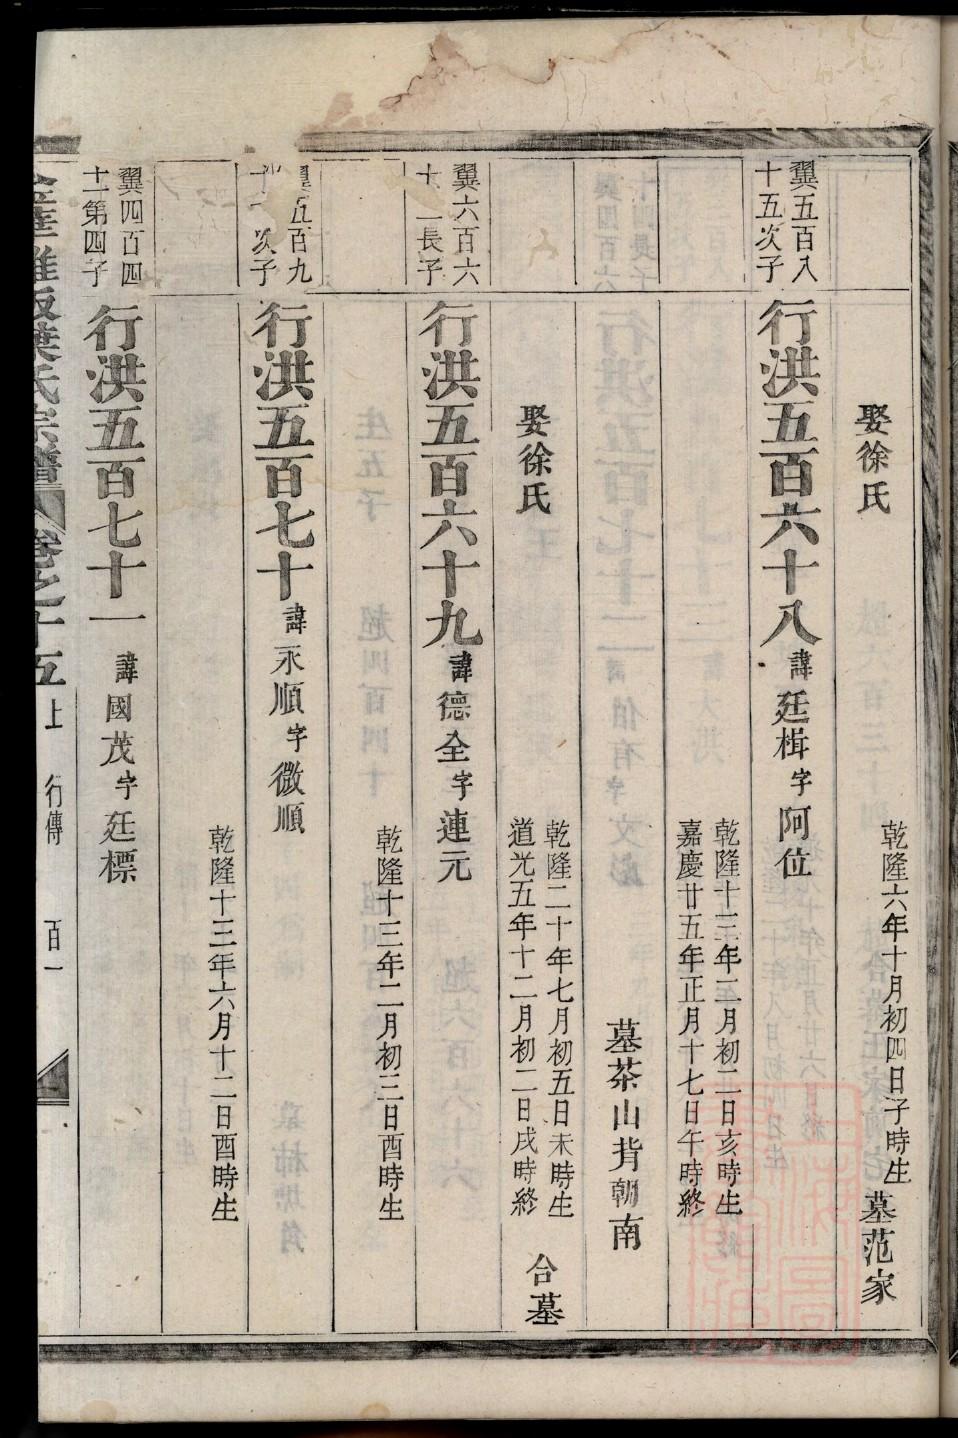 娶徐氏
乾隆六年十月初四日子時生
墓范家
翼五百八
十五次子
行洪五百六十八
諱廷楫字阿位
乾隆十三年二月初二日亥時生
嘉慶廿五年正月十七日午時終
墓茶山背朝南
娶徐氏
乾隆二十年七月初五日未時生
道光五年十二月初二日戌時終
合墓
翼六百六
十一長子
行洪五百六十九
諱德全字蓮元
乾隆十三年二月初三日酉時生
翼五百九
十一次子
行洪五百七十
諱永順字微順
乾隆十三年六月十二日酉時生
翼四百四
十一第四子
行洪五百七十一
諱國茂字廷標
葉氏宗譜
卷之十五上
行傳
百一